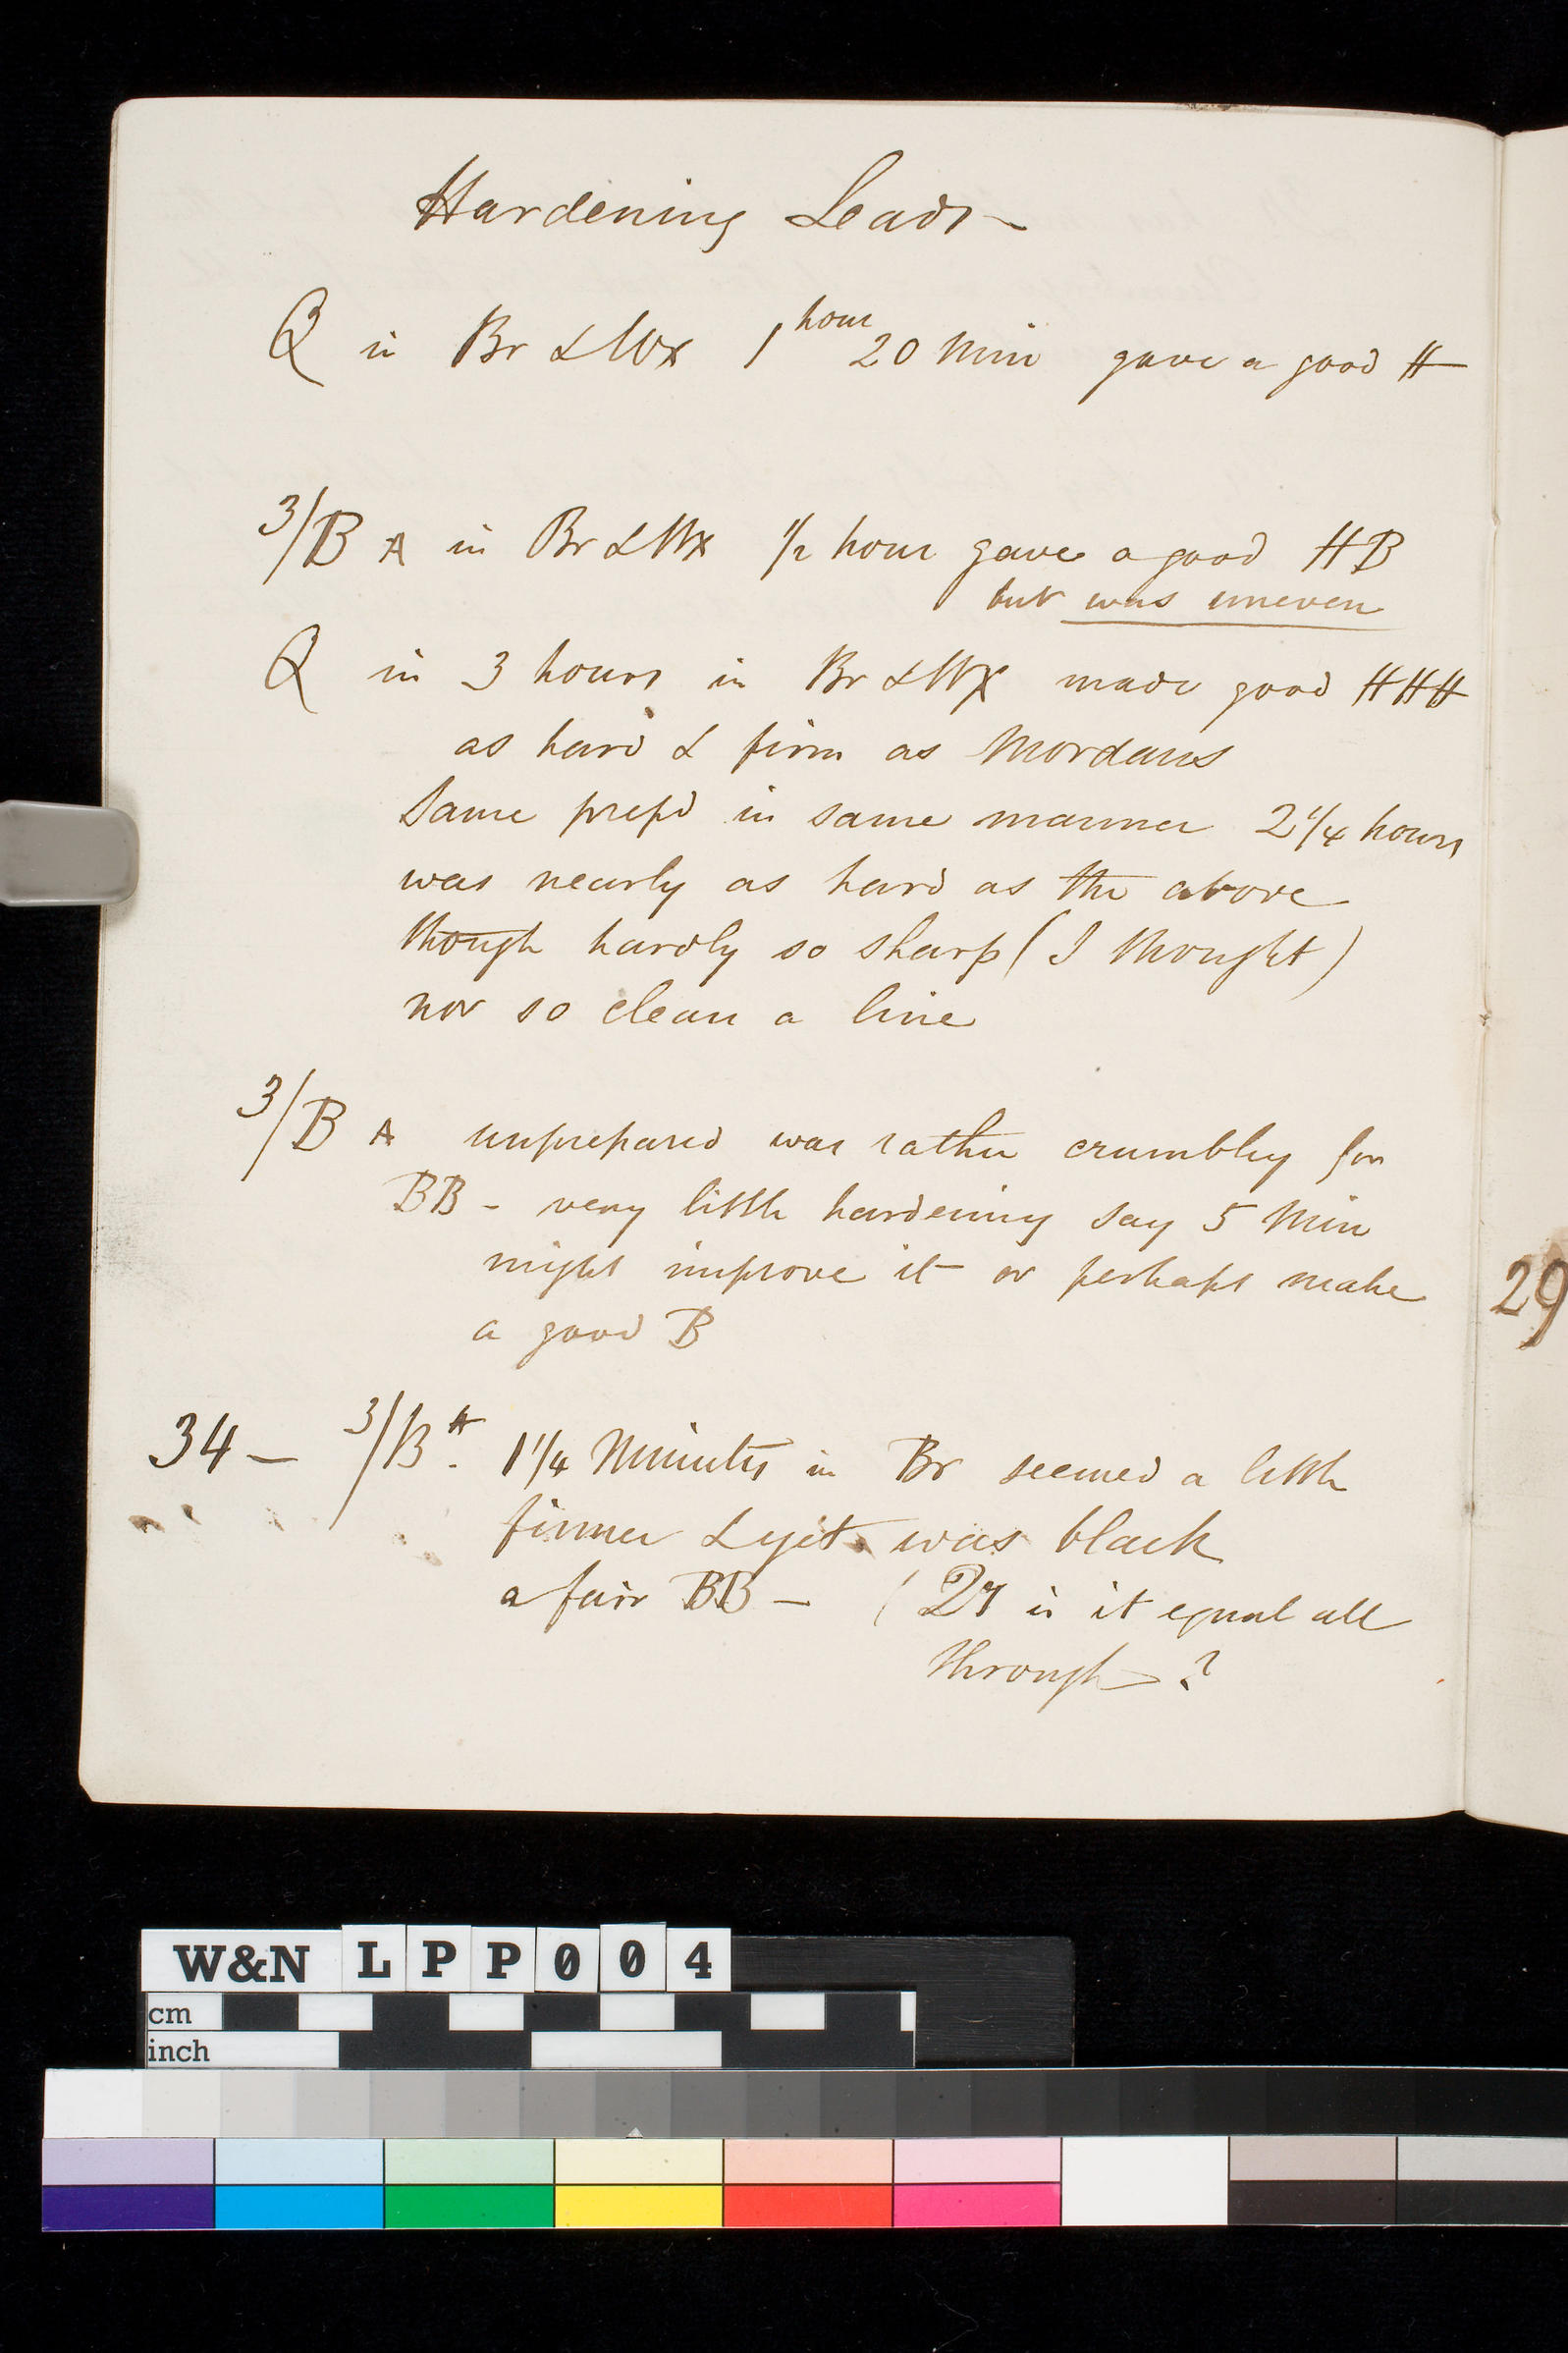 Hardening Leads -
Q in Br & Wx 1 hour 20 Min gave a good H
3/B A in Br & Wx 1/2 hour gave a good HB
but was uneven
Q in 3 hours in Br & Wx made good HHH
as hard & firm as Mordans
Same prepd in same manner 2 1/4 hours
was nearly as hard as the above
though hardly so sharp (I thought)
nor so clean a line
3/B A unprepared was rather crumbly for
BB - very little hardening say 5 Min
might improve it or perhaps make
a good B
29
34 - 3/B A. 1 1/4 Minutes in Br seemed a little
firmer & yet was black
a fair BB - ( Qy is it equal all
through ?
W&N LPP004
cm
inch